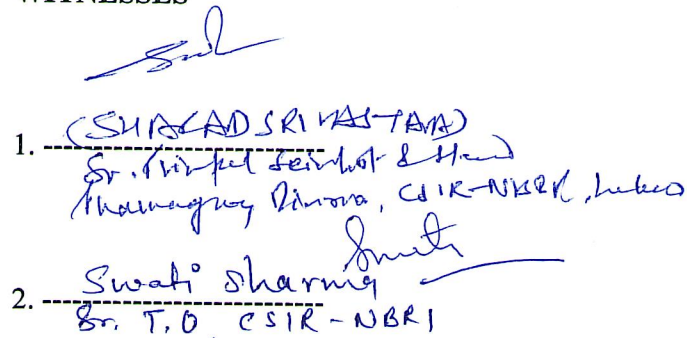 WITNESSES
1. (SHARAD SRIVASTAVA)
Sr. Principal Scientist & Head
Pharmacognosy Division, CSIR-NBRI, Lucknow
2. Swati Sharma
Sr. T.O CSIR-NBRI